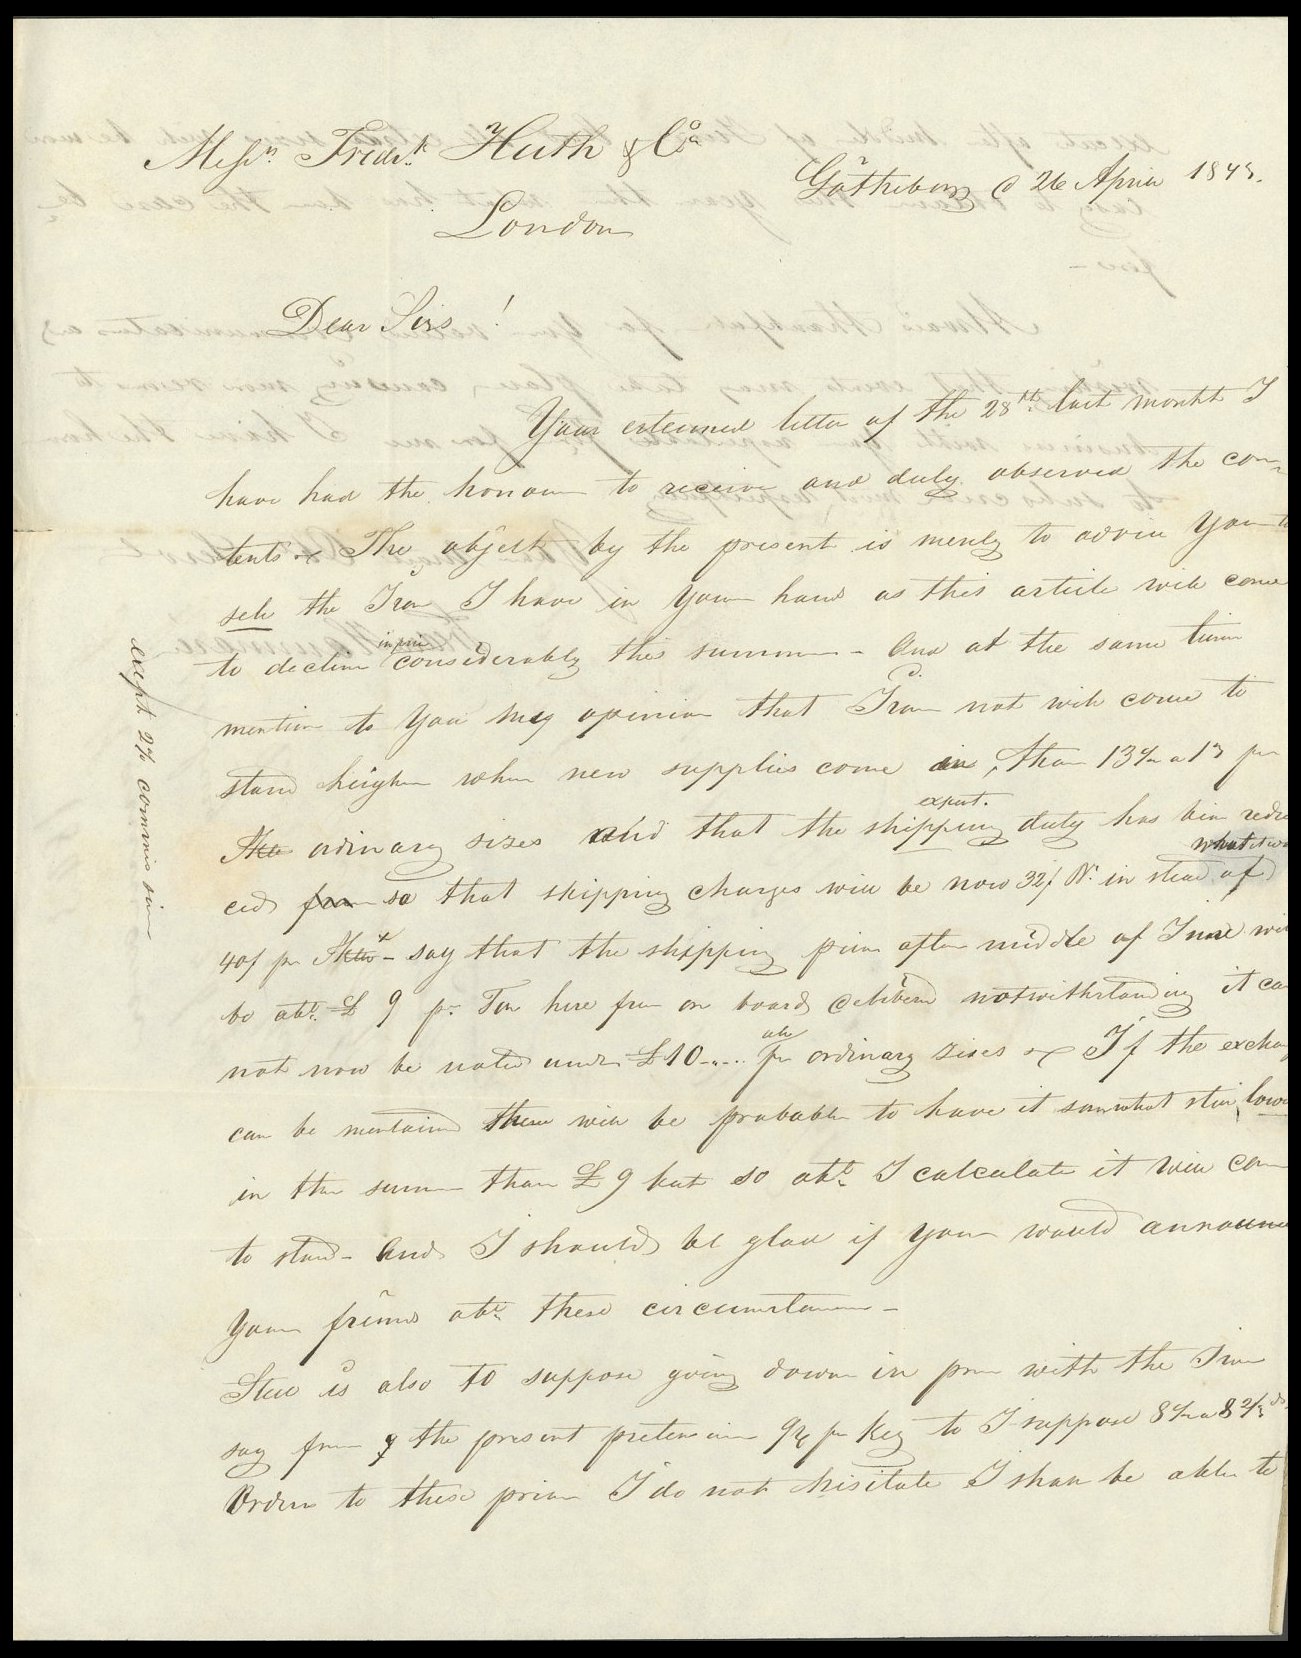 Messrs Fredrk Huth & Co
Götheborg d 26 April 1843.
London
Dear Sirs!
Your esteemed letter of the 28th last month I
have had the honour to receive and duly observed the con-
tents. The object by the present is merely to advice You to
sell the Iron I have in Your hands as this article will come
to decline in price considerably this summer - And at the same time
mention to You my opinion that Iron not will come to
stand heigher when new supplies come in, than 13 a 13 pr
ordinary sizes and that the shipping export. duty has bin redu
ced from so that shipping charges will be now 32/ in stead of what it was
40/ pr - say that the shipping price after middle of June will
be abt. £ 9 pr. Ton here free on board notwithstanding it can
not now be noted under £10 pr ordinary sizes If the exchange
can be mentained there will be probable to have it somewhat still lower
in the summer than £ 9 but so abt. I calculate it will come
to stand - And I should be glad if You would announce
Your friends abt. these circumstances -
Steel is also to suppose going down in price with the Iron
say from the present pretension pr Keg to I suppose 8 a 8 2/3 ds.
Orders to these prices I do not hesitate I shall be able to
except 2% commission